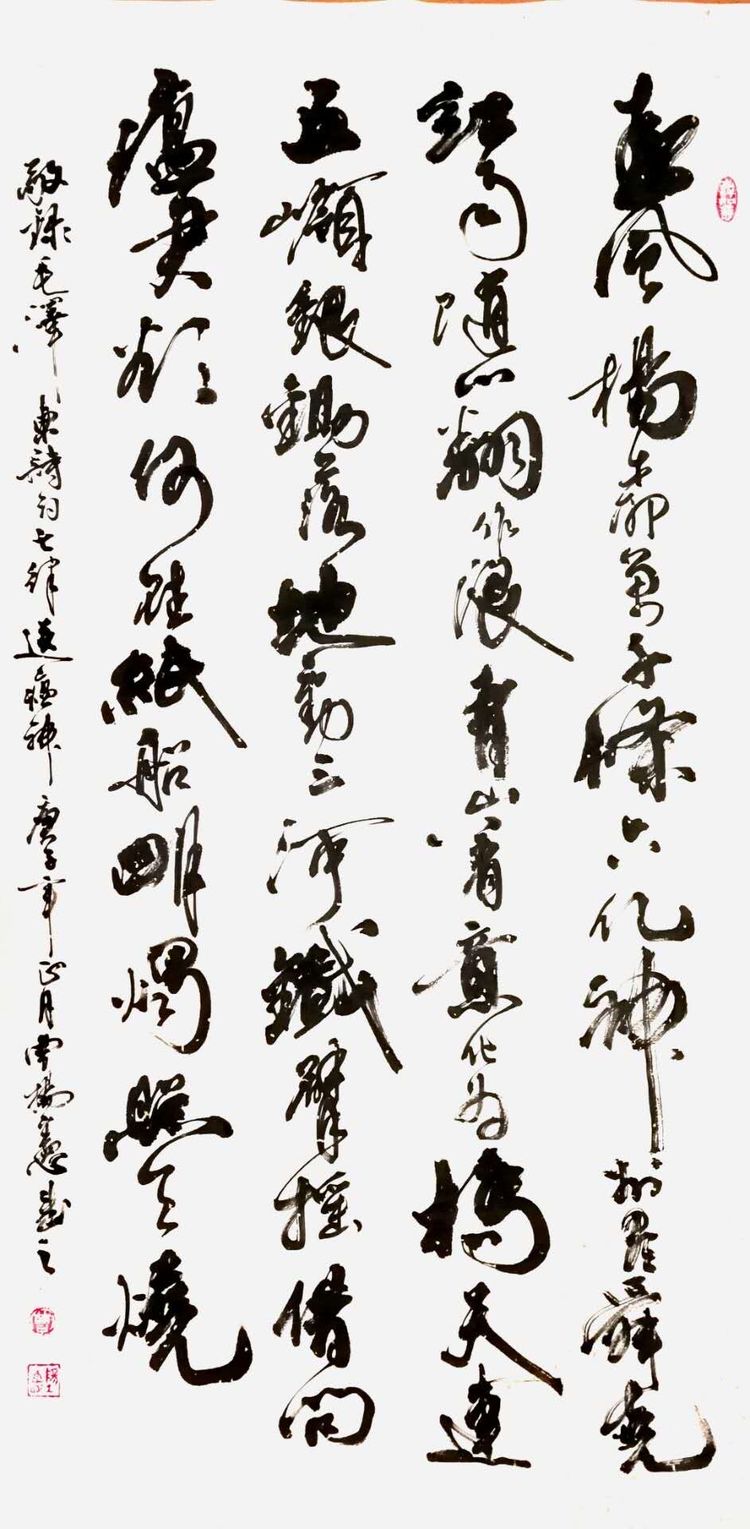 春風楊柳萬千條六亿神州尽舜堯
紅雨隨心翻作浪青山着意化为橋天連
五嶺銀鋤落地動三河鐵臂摇借問
瘟君欲何往紙船明燭照天燒
敬録毛澤東詩句七律送瘟神庚子年正月楊書之